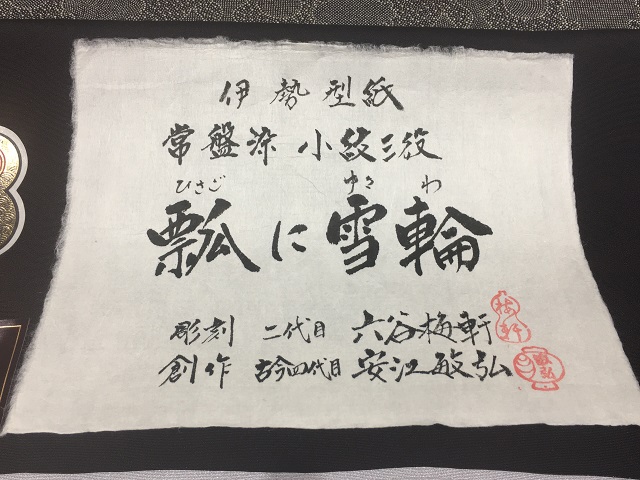 伊勢型紙
常盤染 小紋三役
ひさご ゆきわ
瓢に雪輪
彫刻 二代目 六谷梅軒
創作 古今四代目 安江敏弘
梅軒
敏弘